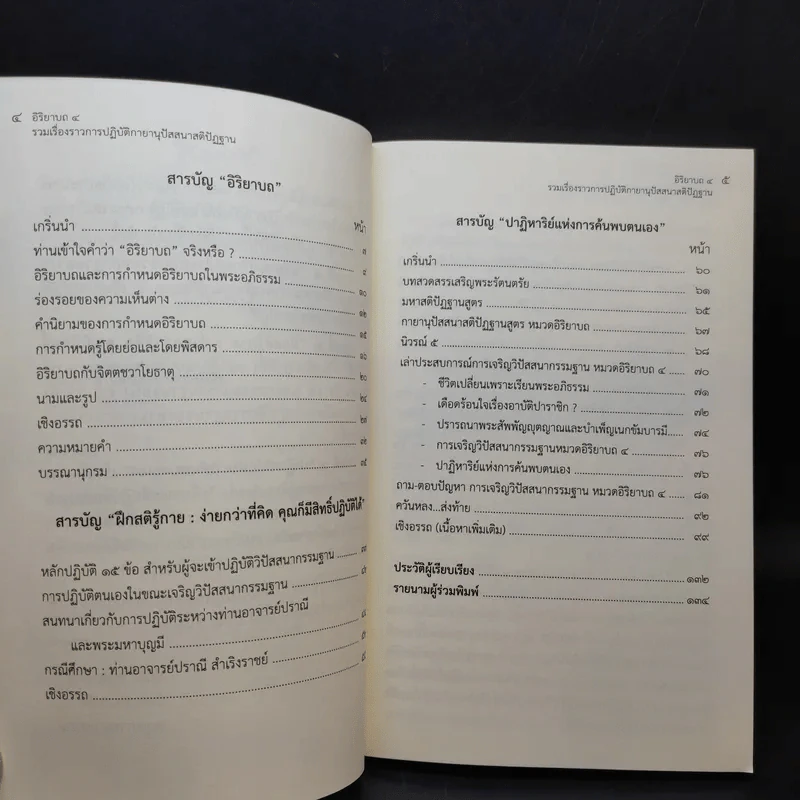 ๔ อิริยาบถ ๔
รวมเรื่องราวการปฏิบัติกายานุปัสสนาสติปัฏฐาน
สารบัญ “อิริยาบถ”
หน้า
เกริ่นนำ
ท่านเข้าใจคำว่า “อิริยาบถ” จริงหรือ ?
อิริยาบถและการกำหนดอิริยาบถในพระอภิธรรม ๑๐
ร่องรอยของความเห็นต่าง ๑๒
คำนิยามของการกำหนดอิริยาบถ ๑๕
การกำหนดรู้โดยย่อและโดยพิสดาร ๑๖
อิริยาบถกับจิตตชวาโยธาตุ ๒๐
นามและรูป ๒๔
เชิงอรรถ
ความหมายคำ
บรรณานุกรม
สารบัญ “ฝึกสติรู้กาย : ง่ายกว่าที่คิด คุณก็มีสิทธิ์ปฏิบัติได้”
หลักปฏิบัติ ๑๕ ข้อ สำหรับผู้จะเข้าปฏิบัติวิปัสสนากรรมฐาน
การปฏิบัติตนเองในขณะเจริญวิปัสสนากรรมฐาน
สนทนาเกี่ยวกับการปฏิบัติระหว่างท่านอาจารย์ปราณี
และพระมหาบุญมี
กรณีศึกษา : ท่านอาจารย์ปราณี สำเริงราชย์
เชิงอรรถ
อิริยาบถ ๔ ๕
รวมเรื่องราวการปฏิบัติกายานุปัสสนาสติปัฏฐาน
สารบัญ “ปาฏิหาริย์แห่งการค้นพบตนเอง”
หน้า
เกริ่นนำ ๖๐
บทสวดสรรเสริญพระรัตนตรัย ๖๑
มหาสติปัฏฐานสูตร ๖๕
กายานุปัสสนาสติปัฏฐานสูตร หมวดอิริยาบถ ๖๗
นิวรณ์ ๕ ๖๘
เล่าประสบการณ์การเจริญวิปัสสนากรรมฐาน หมวดอิริยาบถ ๔ ๗๐
- ชีวิตเปลี่ยนเพราะเรียนพระอภิธรรม ๗๑
- เดือดร้อนใจเรื่องอาบัติปาราชิก ? ๗๒
- ปรารถนาพระสัพพัญญุตญาณและบำเพ็ญเนกขัมบารมี ๗๔
- การเจริญวิปัสสนากรรมฐานหมวดอิริยาบถ ๔ ๗๖
- ปาฏิหาริย์แห่งการค้นพบตนเอง ๗๖
ถาม-ตอบปัญหา การเจริญวิปัสสนากรรมฐาน หมวดอิริยาบถ ๔ ๘๑
ควันหลง...ส่งท้าย ๙๒
เชิงอรรถ (เนื้อหาเพิ่มเติม) ๙๙
ประวัติผู้เรียบเรียง ๑๓๒
รายนามผู้ร่วมพิมพ์ ๑๓๔